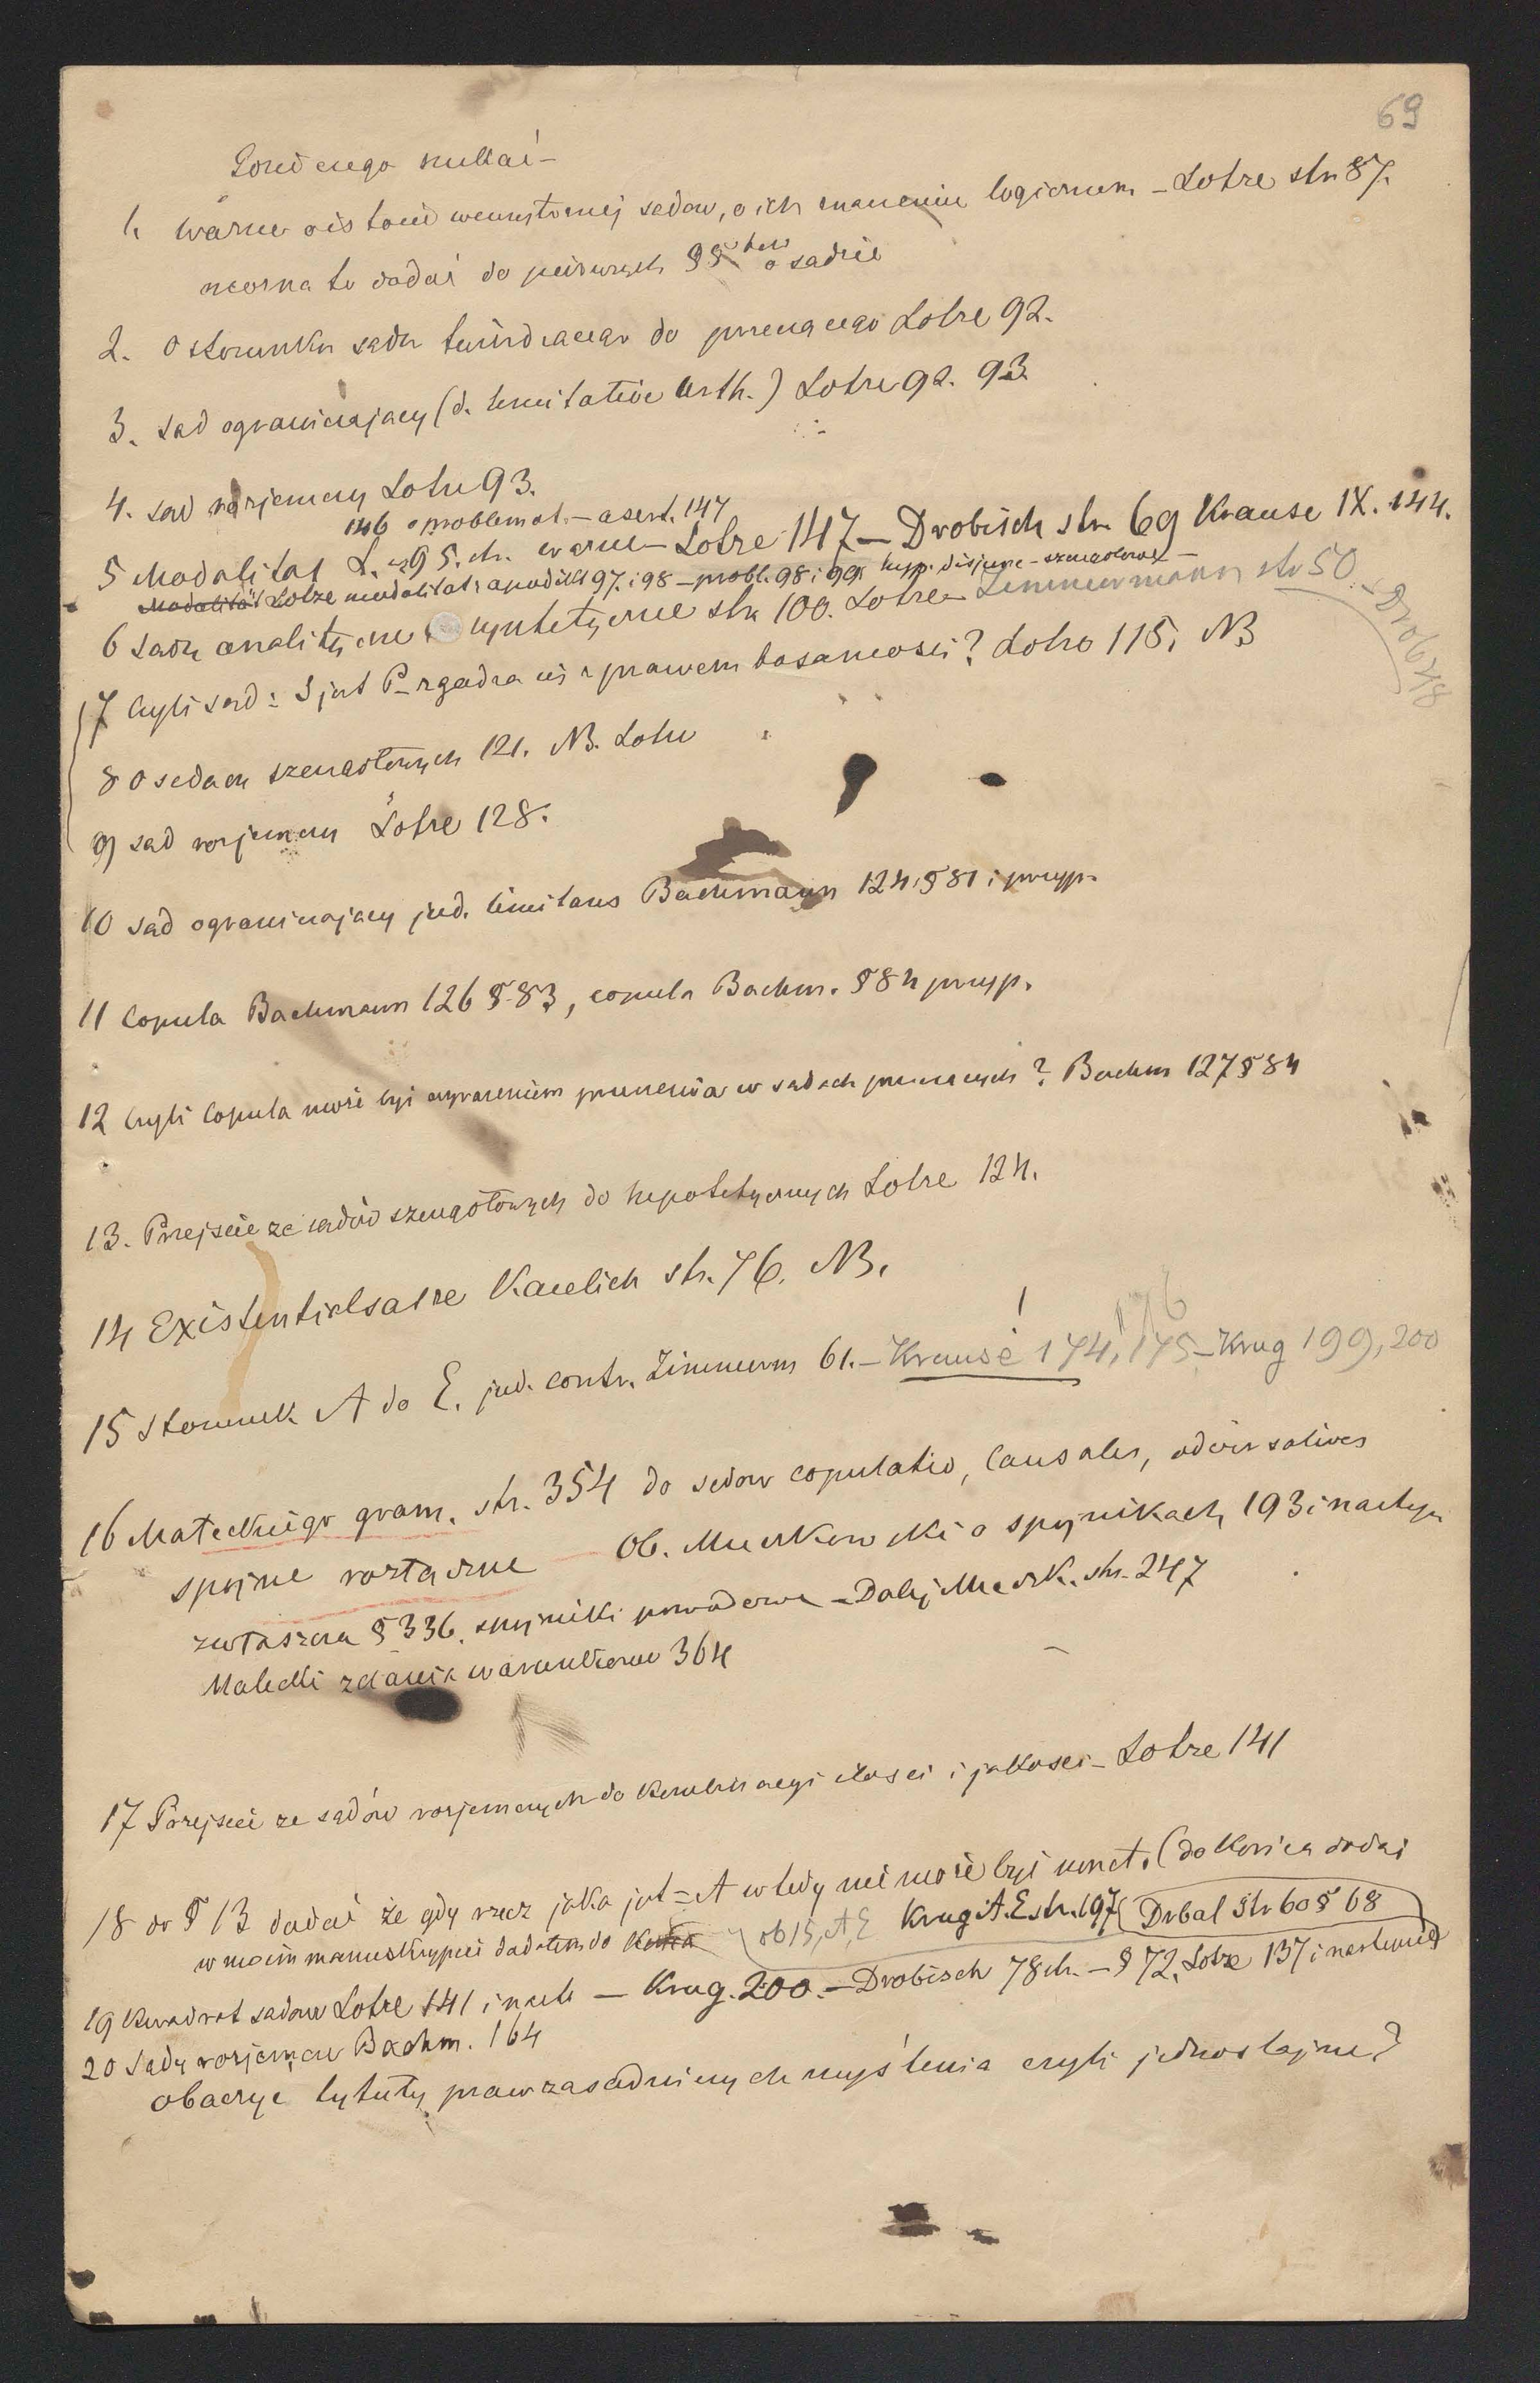 69
czego szukać –
1. Ważne o istocie wewnętrznej sądów, o ich znaczeniu logicznem – Lotze str 87.
można to dodać do pierwszych §§ o sądzie
2. O stosunku sądu twierdzącego do przeczącego Lotze 92.
3. Sąd ograniczający (d. limitative Urth.) Lotze 92. 93.
4. sąd rozjemczy Lotze 93.
146 o problemat. – asert. 147
5 Modalität L. 95. ch. ważne – Lotze 147 – Drobisch str. 69 Krause IX. 144.
Modalität Lotze modalität: apodikt 97. i 98 – probl. 98 i 99. hyp. disjunc – szczegółowe –
6 Sądy analityczne syntetyczne str 100. Lotze – Zimmermann str 50
Drob 48
7 Czyli sąd: S jest P – zgadza się z prawem tosamości? Lotze 115, NB
8 O sądach szczegółowych 121. NB. Lotze
9) sąd rozjemczy Lotze 128.
10 Sąd ograniczający jud. limitans Bachmann 124, § 81 i przyp.
11 Copula Bachmann 126 § 83, copula Bachm. § 84 przyp.
12 Czyli Copula może być wyrażeniem przeczenia w sądach przeczących? Bachm 127 § 84
13. Przejście ze sądów szczegółowych do hipotetycznych Lotze 124.
14 Existentialsätze Kaulich str. 76. NB.
!
176
15 Stosunek A do E. jud. contr. Zimmerm 61. – Krause 174, 175 – Krug 199, 200
16 Małeckiego gram. str. 354 do sądów copulativ, causales, adversatives
spójne rozłączne ob. Muczkowski o spójnikach 193 i następn
zwłaszcza § 336. spójniki powodowe – Dalej Muczk. str. 247
Małecki zdania warunkowe 364
17 Przejście ze sądów rozjemczych do kombinacyi ilości i jakości – Lotze 141
18 do § 13 dodać że gdy rzecz jaka jest = A wtedy nie może być (do końca dodać
w moim manuskrypcie dodałem do końca ob 15, A, E Krug A. E str. 197 Drbal Str 60 § 68
19 Kwadrat sądów Lotze 141 i nast – Krug. 200. – Drobisch 78 ch. – § 72. Lotze 137 i następnie
20 Sądy rozjemcze Bachm. 164
obaczyć tytuły praw zasadniczych myślenia czyli jednostajne?